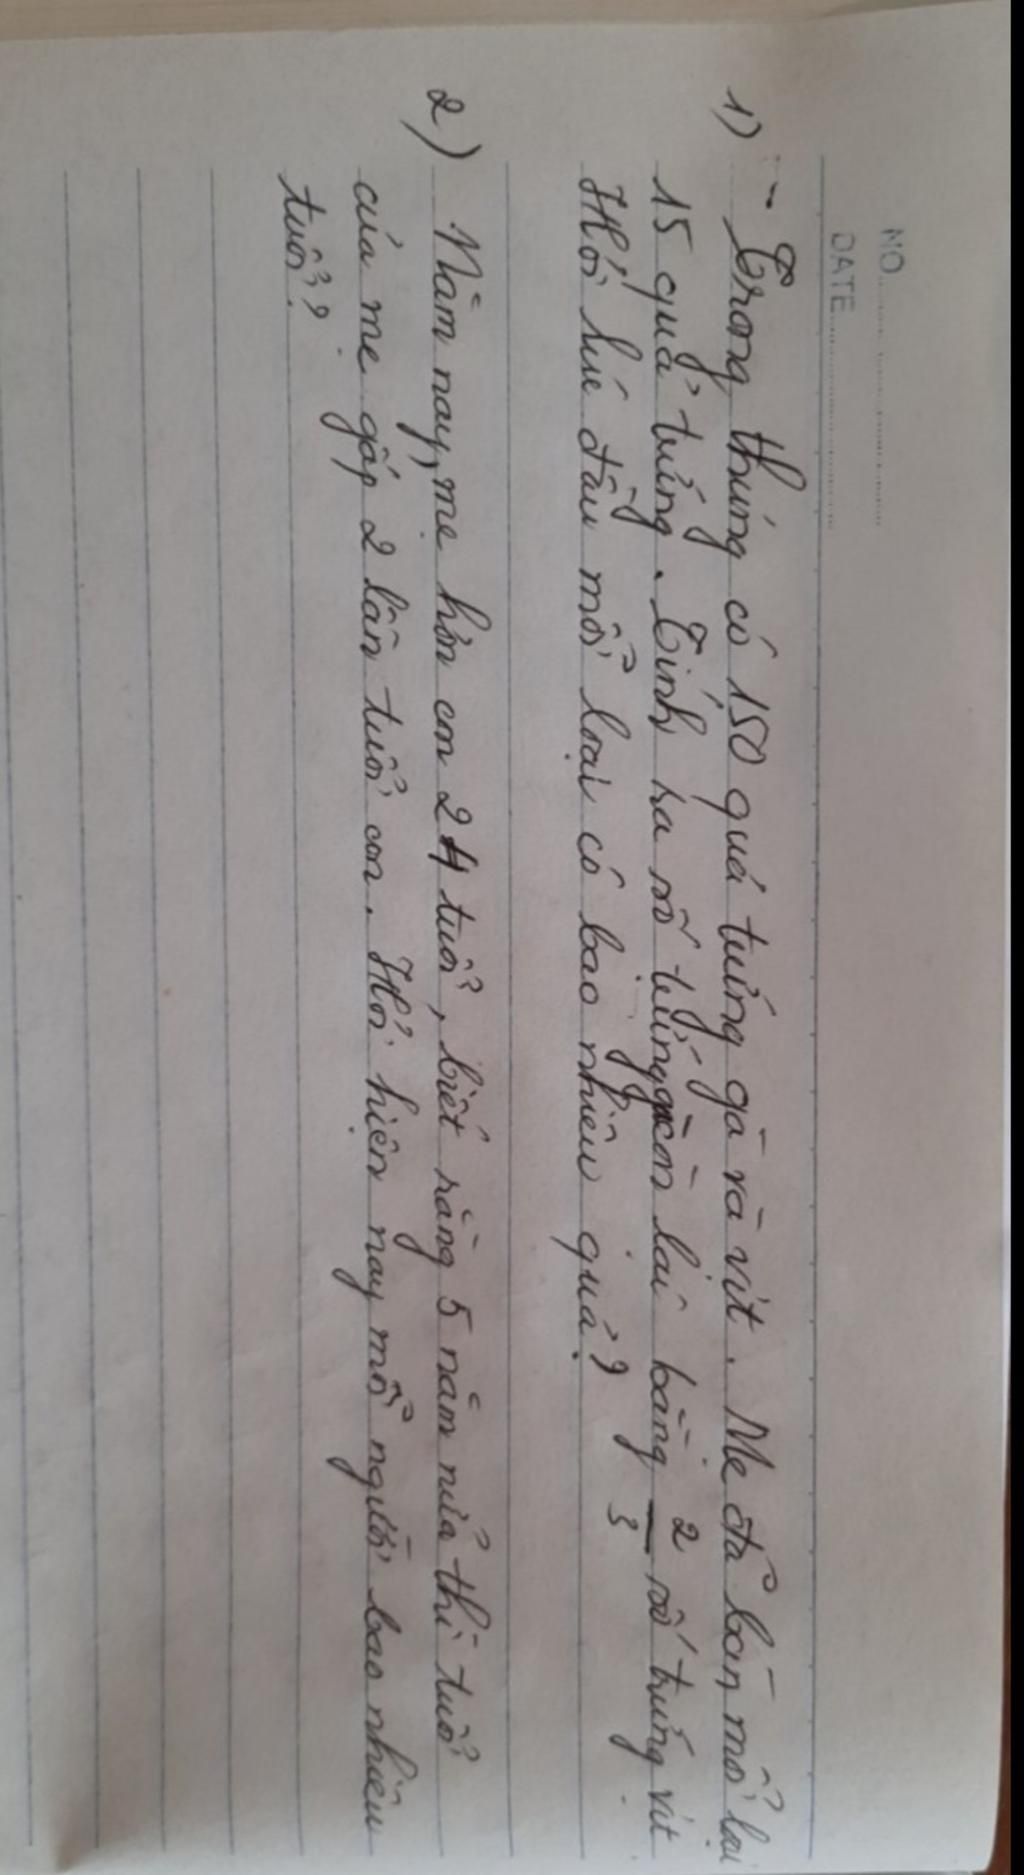 NO.
DATE
1) - Trong thúng có 150 quả trứng gà và vịt. Mẹ đã bán mỗi loại
15 quả trứng. Tính ra số trứng gà còn lại bằng 2/3 số trứng vịt
Hỏi lúc đầu mỗi loại có bao nhiêu quả?
2) Năm nay, mẹ hơn con 24 tuổi, biết rằng 5 năm nữa thì tuổi
của mẹ gấp 2 lần tuổi con. Hỏi hiện nay mỗi người bao nhiêu
tuổi?